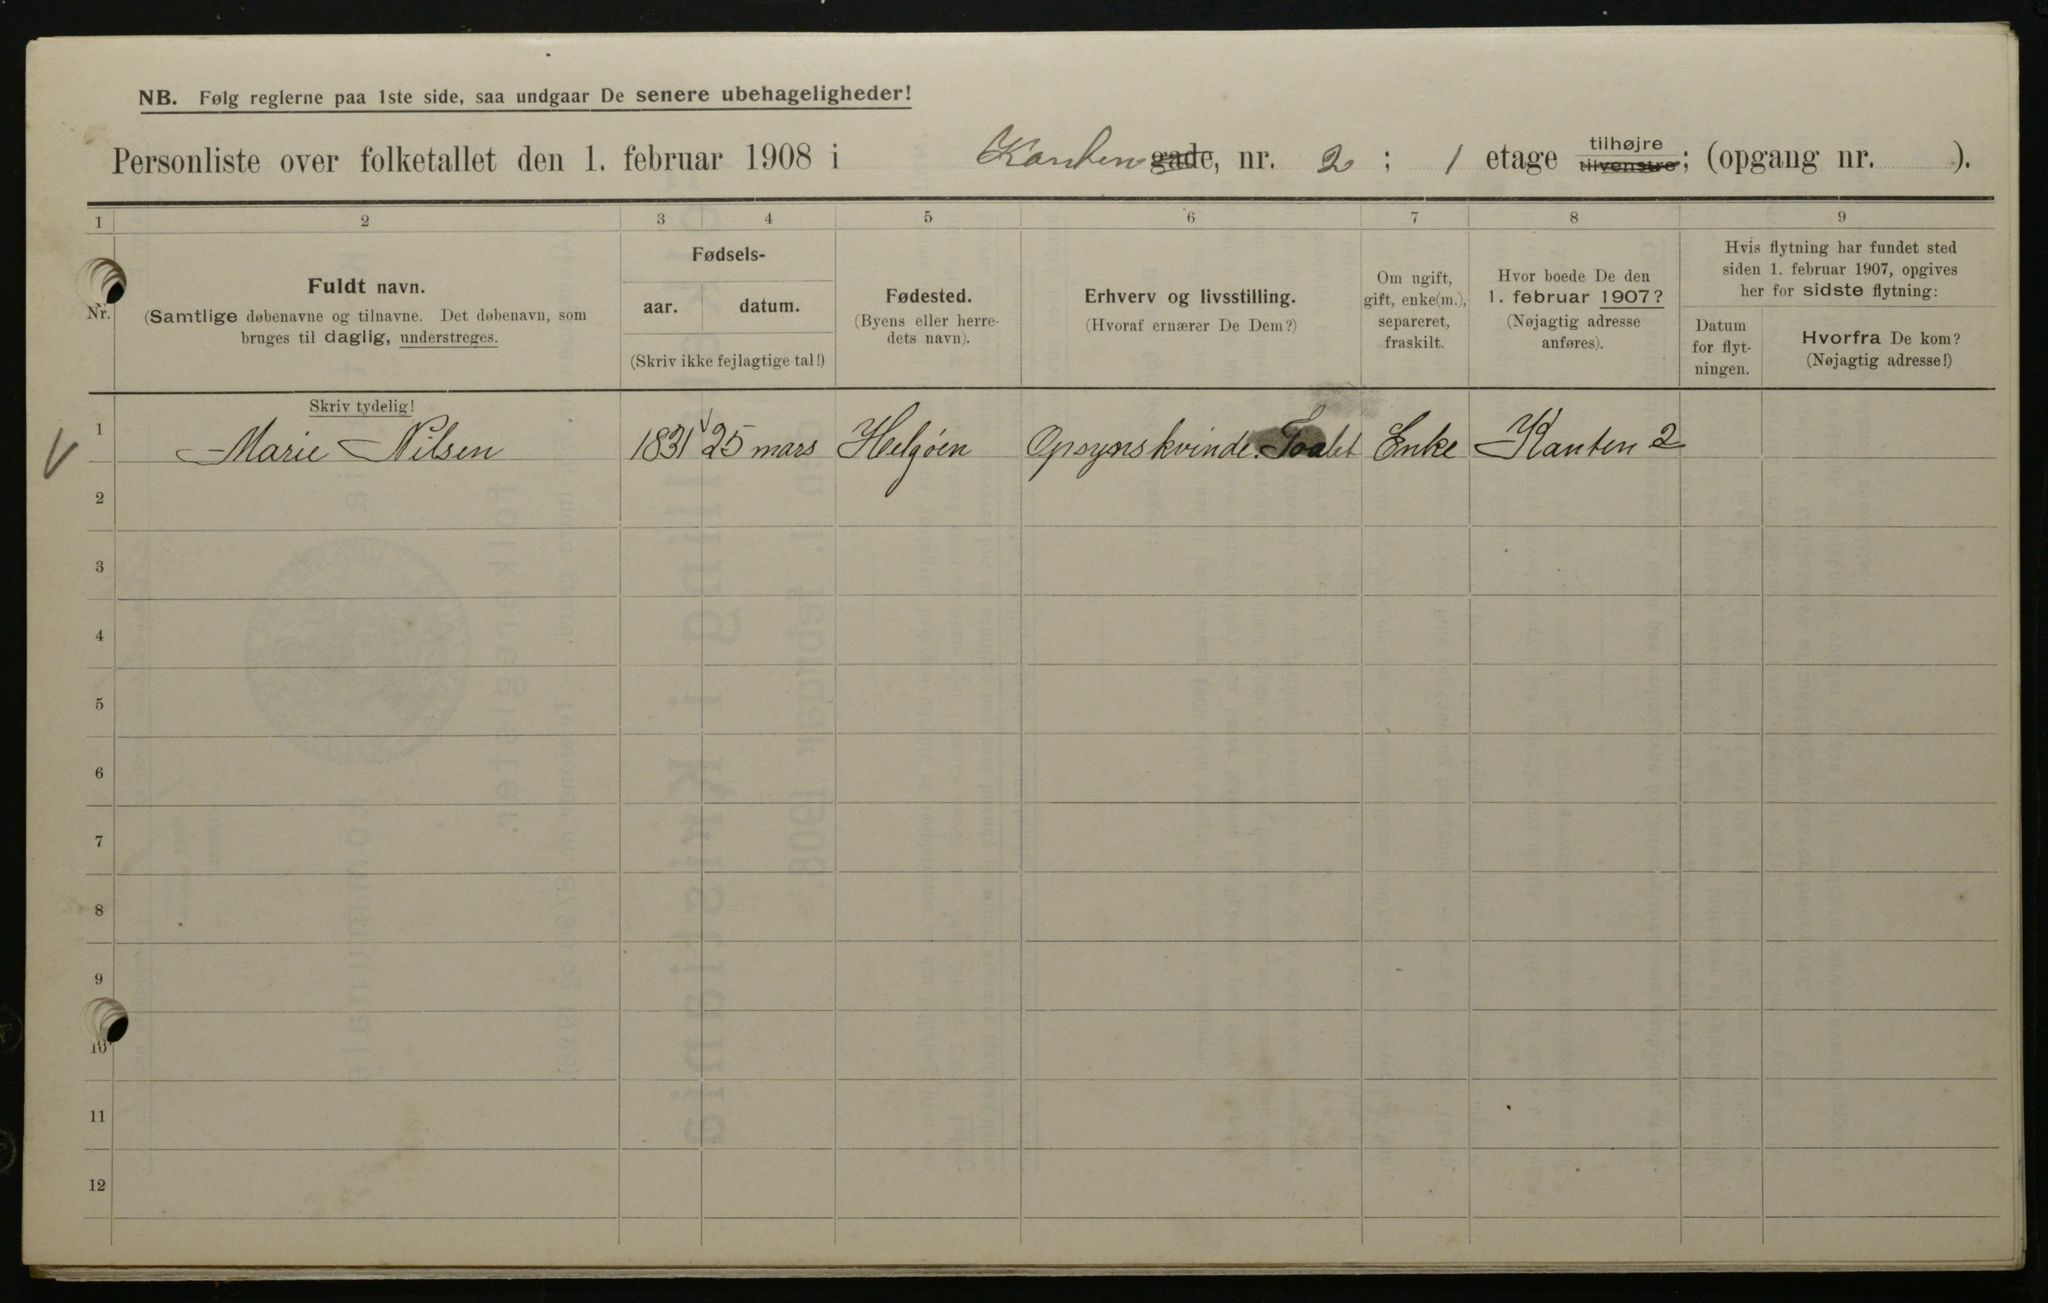 NB. Følg reglerne paa 1ste side, saa undgaar De senere ubehageligheder!
Personliste over folketallet den 1. februar 1908 i Kanten gade, nr. 2 ; 1 etage tilhøjre tilvenstre; (opgang nr. ).
1 2 3 4 5 6 7 8 9
Nr.
Fuldt navn.
(Samtlige døbenavne og tilnavne. Det døbenavn, som
bruges til daglig, understreges.
Fødsels-
aar. datum.
(Skriv ikke fejlagtige tal!)
Fødested.
(Byens eller herre-
dets navn).
Erhverv og livsstilling.
(Hvoraf ernærer De Dem?)
Om ugift,
gift, enke(m.),
separeret,
fraskilt.
Hvor boede De den
1. februar 1907?
(Nøjagtig adresse
anføres).
Hvis flytning har fundet sted
siden 1. februar 1907, opgives
her for sidste flytning:
Datum
for flyt-
ningen.
Hvorfra De kom?
(Nøjagtig adresse!)
Skriv tydelig!
1 Marie Nilsen 1831 25 mars Helgøen Opsynskvinde. Toalet Enke Kanten 2
2
3
4
5
6
7
8
9
10
11
12